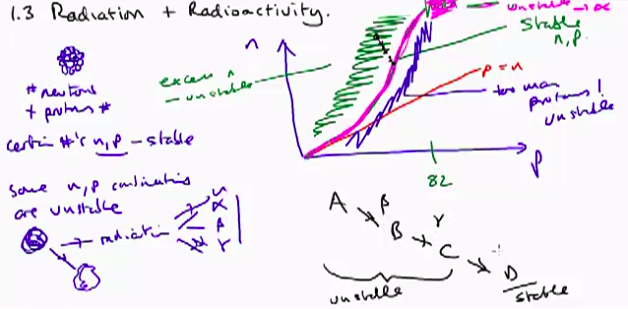 1.3 Radiation + Radioactivity.
# neutrons
+ protons #
certain #'s n, p - stable
some n, p combinations
are unstable
→ radiation
n
α
β
γ
n
excess n
- unstable
unstable → α
stable
n, p.
p = n
too many
protons!
unstable
82
p
A
β
B
γ
C
D
unstable
stable